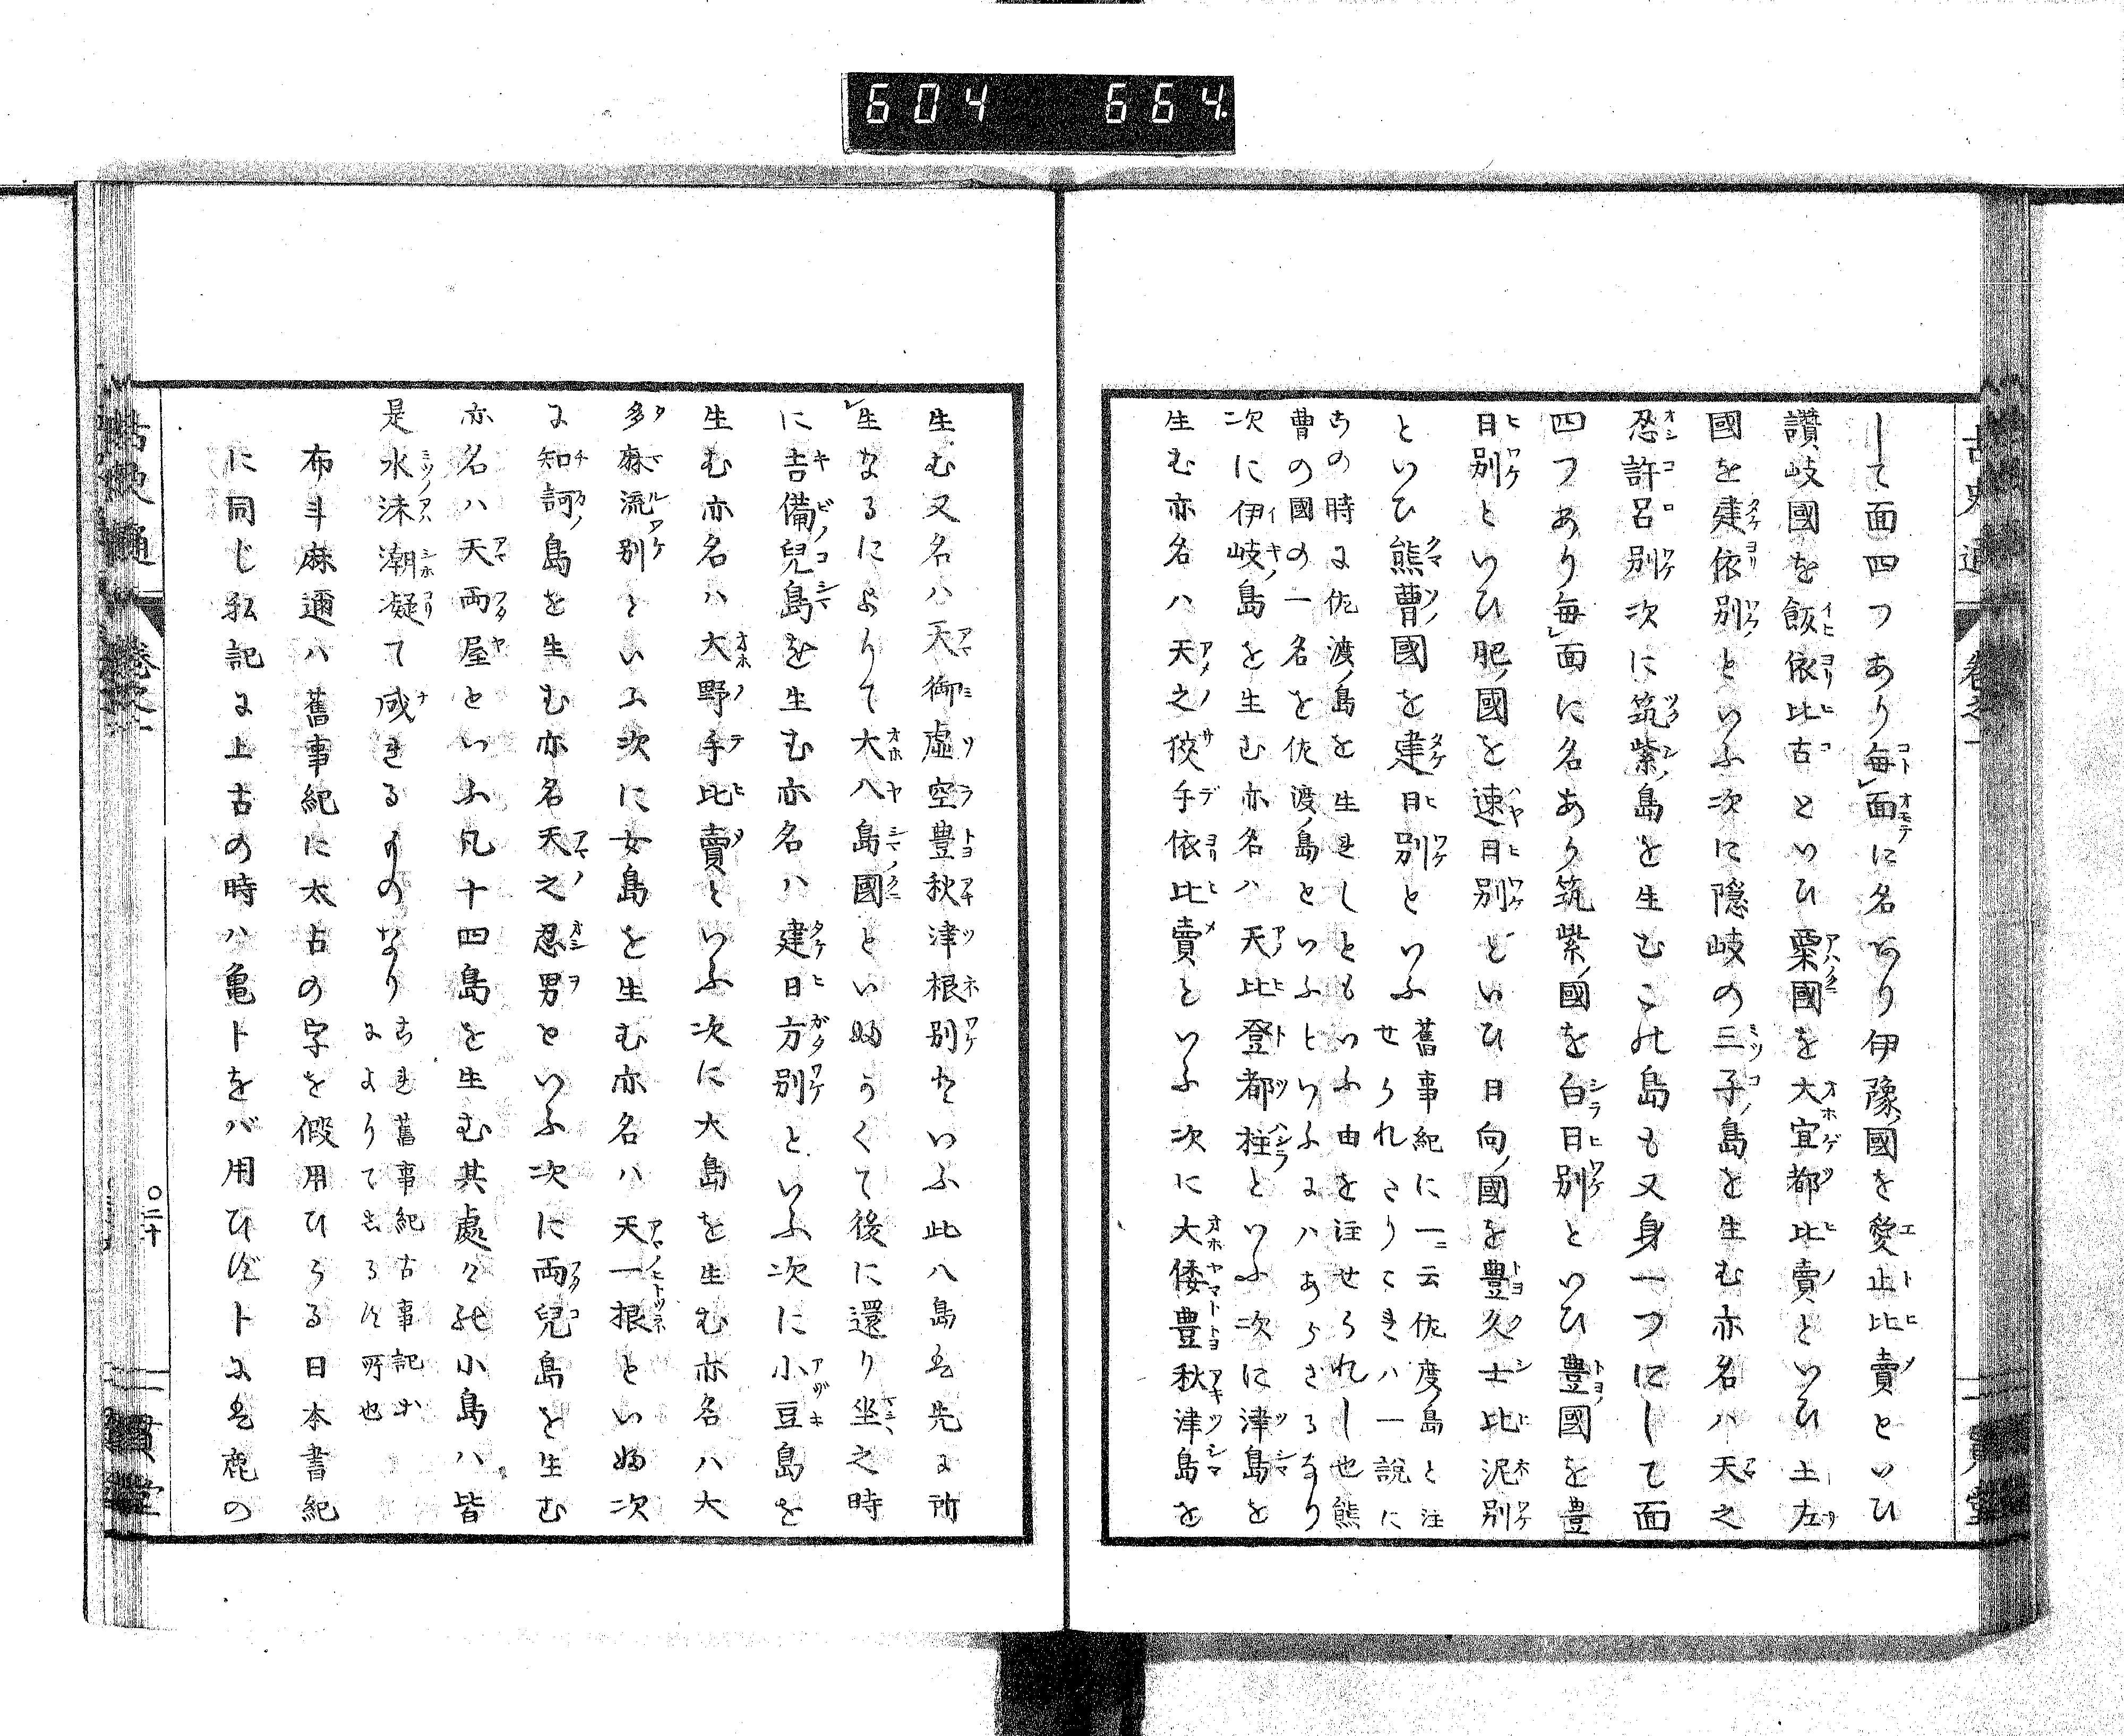 604 664
して面四つあり毎レ面に名あり伊豫ノ國を愛止比賣といひ
讃岐國を飯依比古といひ粟國を大宜都比賣といひ土左
國を建依別といふ次に隠岐の三子ノ島を生む亦名ハ天之
忍許呂別次に筑紫ノ島を生むこれ島も又身一つにして面
四つあり毎レ面に名あり筑紫ノ國を白日別といひ豊國を豊
日別といひ肥ノ國を速日別といひ日向ノ國を豊久士比泥別
といひ熊曹國を建日別といふ
舊事紀に一ニ云佐度ノ島と注
せられさりこれハ一説に
この時に佐渡ノ島を生れしともいふ由を注せられし也熊
曹の國の一名を佐渡ノ島といふといふにハあらざるなり
次に伊岐ノ島を生む亦名ハ天比登都柱といふ次に津島を
生む亦名ハ天之狹手依比賣といふ次に大倭豊秋津島を
生む又名ハ天御虚空豊秋津根別といふ此八島を先に所
レ生なるによりて大八島國といふかくて後に還り坐之時
に吉備兒島を生む亦名ハ建日方別といふ次に小豆島を
生む亦名ハ大野手比賣といふ次に大島を生む亦名ハ大
多麻流別といふ次に女島を生む亦名ハ天一根といふ次
に知訶島を生む亦名天之忍男といふ次に両兒島を生む
亦名ハ天両屋といふ凡十四島を生む其處々の小島ハ皆
是水沫潮凝て成れるものなり
これ舊事紀古事記
によりて出る所也
布斗麻邇ハ舊事紀に太占の字を假用ひらる日本書紀
に同じ私記に上古の時ハ亀卜をバ用ひず卜にハ鹿の
古史通 巻之一
〇二十